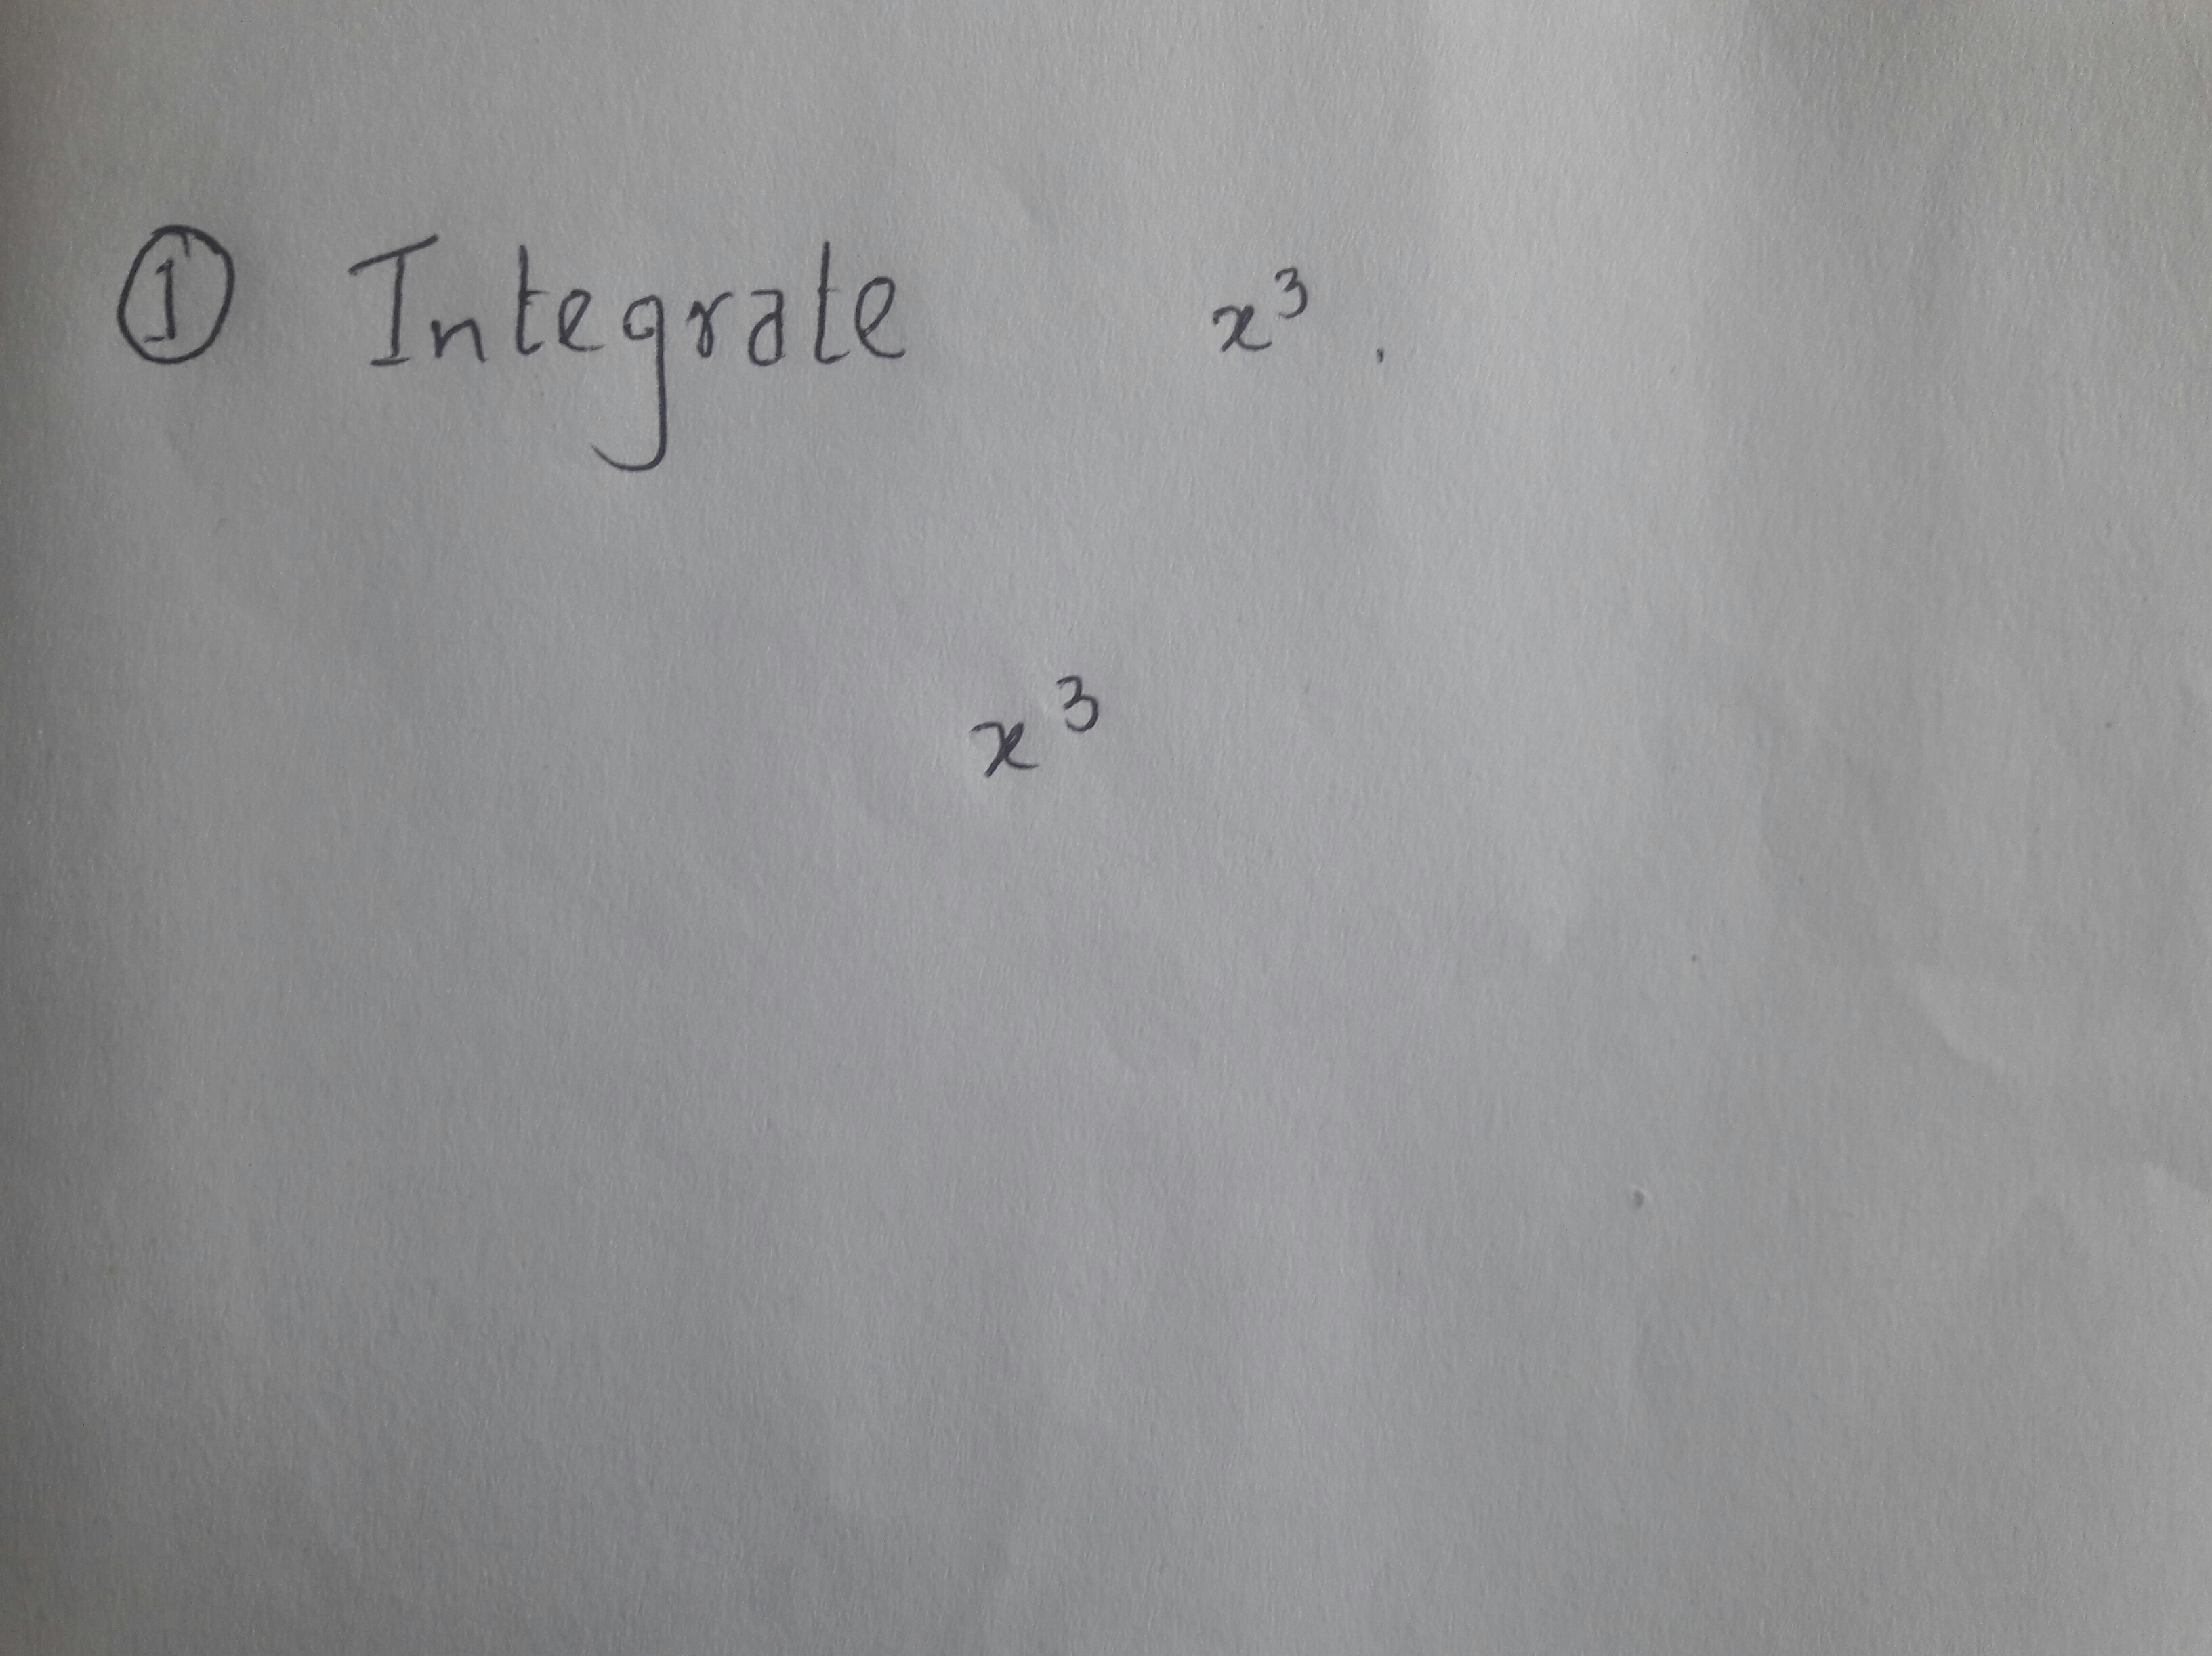 ① Integrate x³.
x³